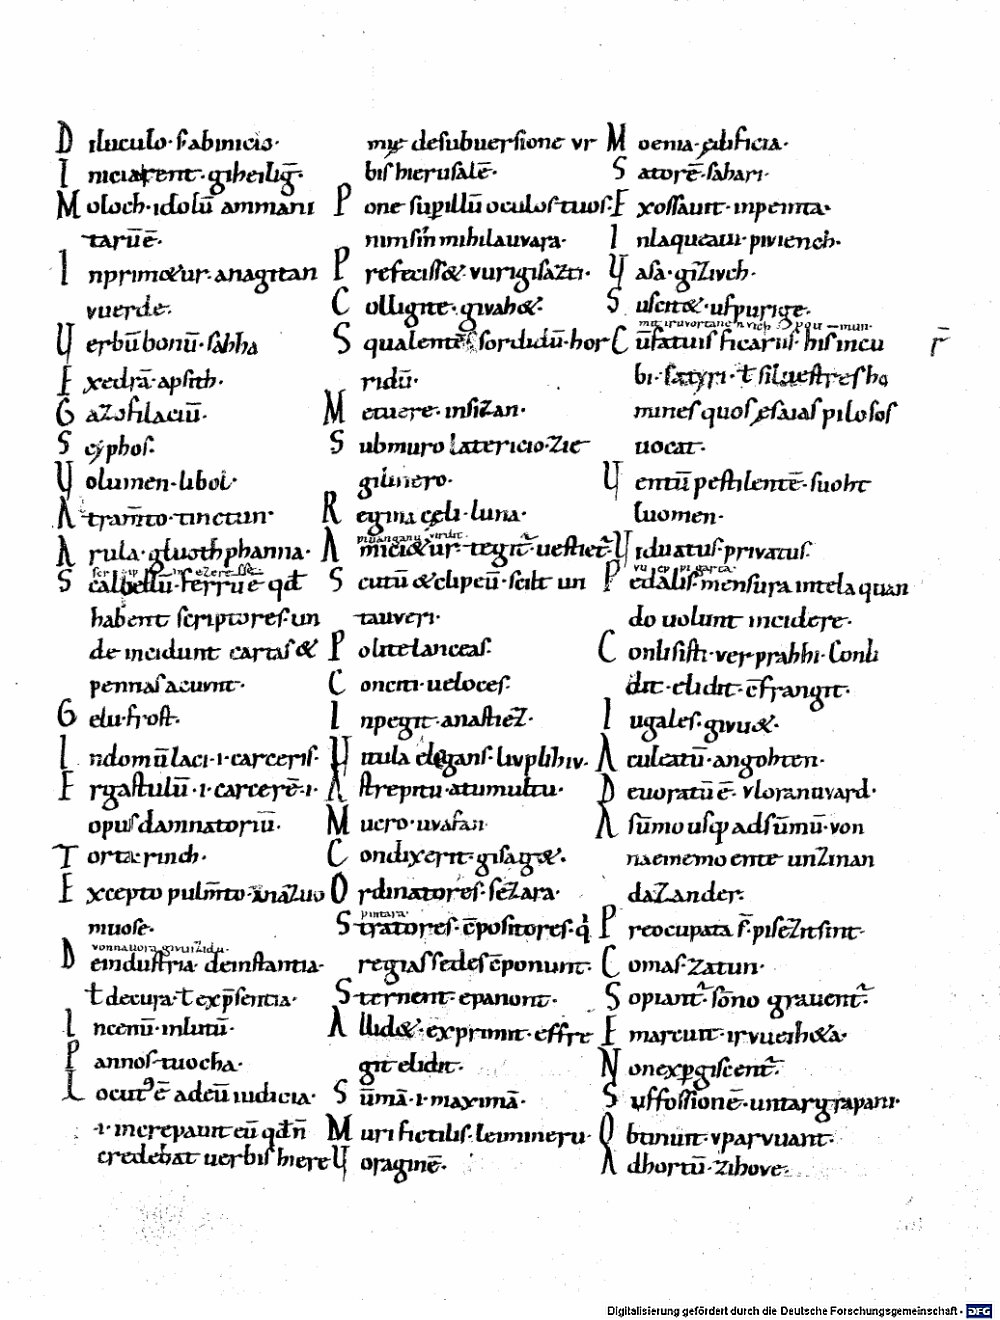 Diluculo· sabinicio·
Iniciarent· giheiliḡ·
Moloch· idolū ammani
tarūē·
Inprimetur· anagitan
vuerde·
Uerbū bonū· sabha
Exedrā· apsith·
Gazofilaciū·
Scyphos·
Uolumen· libol·
Atram̄to· tinctun·
Arula· gluothphanna·
Scalbellū· ferrū ē qđ
habent scriptores· un
de incidunt cartas &
pennas acuunt·
Gelu· frost·
In domū laci· i· carceris·
Ergastulū· i· carcerē· i·
opus damnatoriū·
Torta· rinch·
Excepto pulm̄to·
muose·
De industria· de instantia·
ł de cura· ł exp̄sentia·
In cenū· in lutū·
Pannos· tuocha·
Locutꝰ ē ad eū iudicia·
·i· increpauit eū qđ n̄
credebat uerbis hiere
mię de subuersione ur
bis hierusalē·
Pone sup illū oculos tuos·
nim sin̄ mihila uuara·
Prefecisset· vurigisazti·
Colligite· givahet·
Squalentē· sordidū· hor
ridū·
Metuere· insizan·
Sub muro latericio· zie
gilinero·
Regina cęli· luna·
Amicietur· tegit᷑· uestiet᷑·
Scutū & clipeū· scilt un
tauveri·
Polite lanceas·
Conciti· ueloces·
Inpegit· anastiez·
Uitula elegans· livplihiv·
A strepitu· a tumultu·
Mucro· uvafan·
Condixerit· gisaget·
Ordinatores· sezara·
pintara·
Stratores· c̄positores· q̇
regias sedes c̄ponunt·
Sternent· epanont·
Allidet· exprimit· effre
git elidit·
Sūmā· i· maximā·
Muri fictilis· leimineru·
Uoraginē·
Moenia· ędificia·
Satorē· sahari·
Exossauit· inpeinta·
Inlaqueaui· piviench·
Uasa· gizivch·
Suscitet· ufpurige·
Cū fatuis ficariis· his incu
bi· satyri· ł siluestres ho
mines quos esaias pilosos
uocat·
Uentū pestilentē· suoht
luomen·
Uiduatus· privatus·
Pedalis· mensura in tela quan
do uolunt incidere·
Conlisisti· verprahhi· Conli
dit· elidit· c̄frangit·
Iugales· givuet·
Aculeatū· angohten·
Deuoratū ē· vloranuvard·
A sūmo usq; ad sūmū· von
naememo ente unzinan
dazander·
Preocupata s̄· pisezit sint·
Comas· zatun·
Sopiant᷑· sōno grauent᷑·
Emarcuit· irvueiheta·
Non exp̱giscent᷑·
Suffossionē· untargrapani·
Obtinuit· vparvuant·
Ad hortū· zihove·
Digitalisierung gefördert durch die Deutsche Forschungsgemeinschaft - DFG